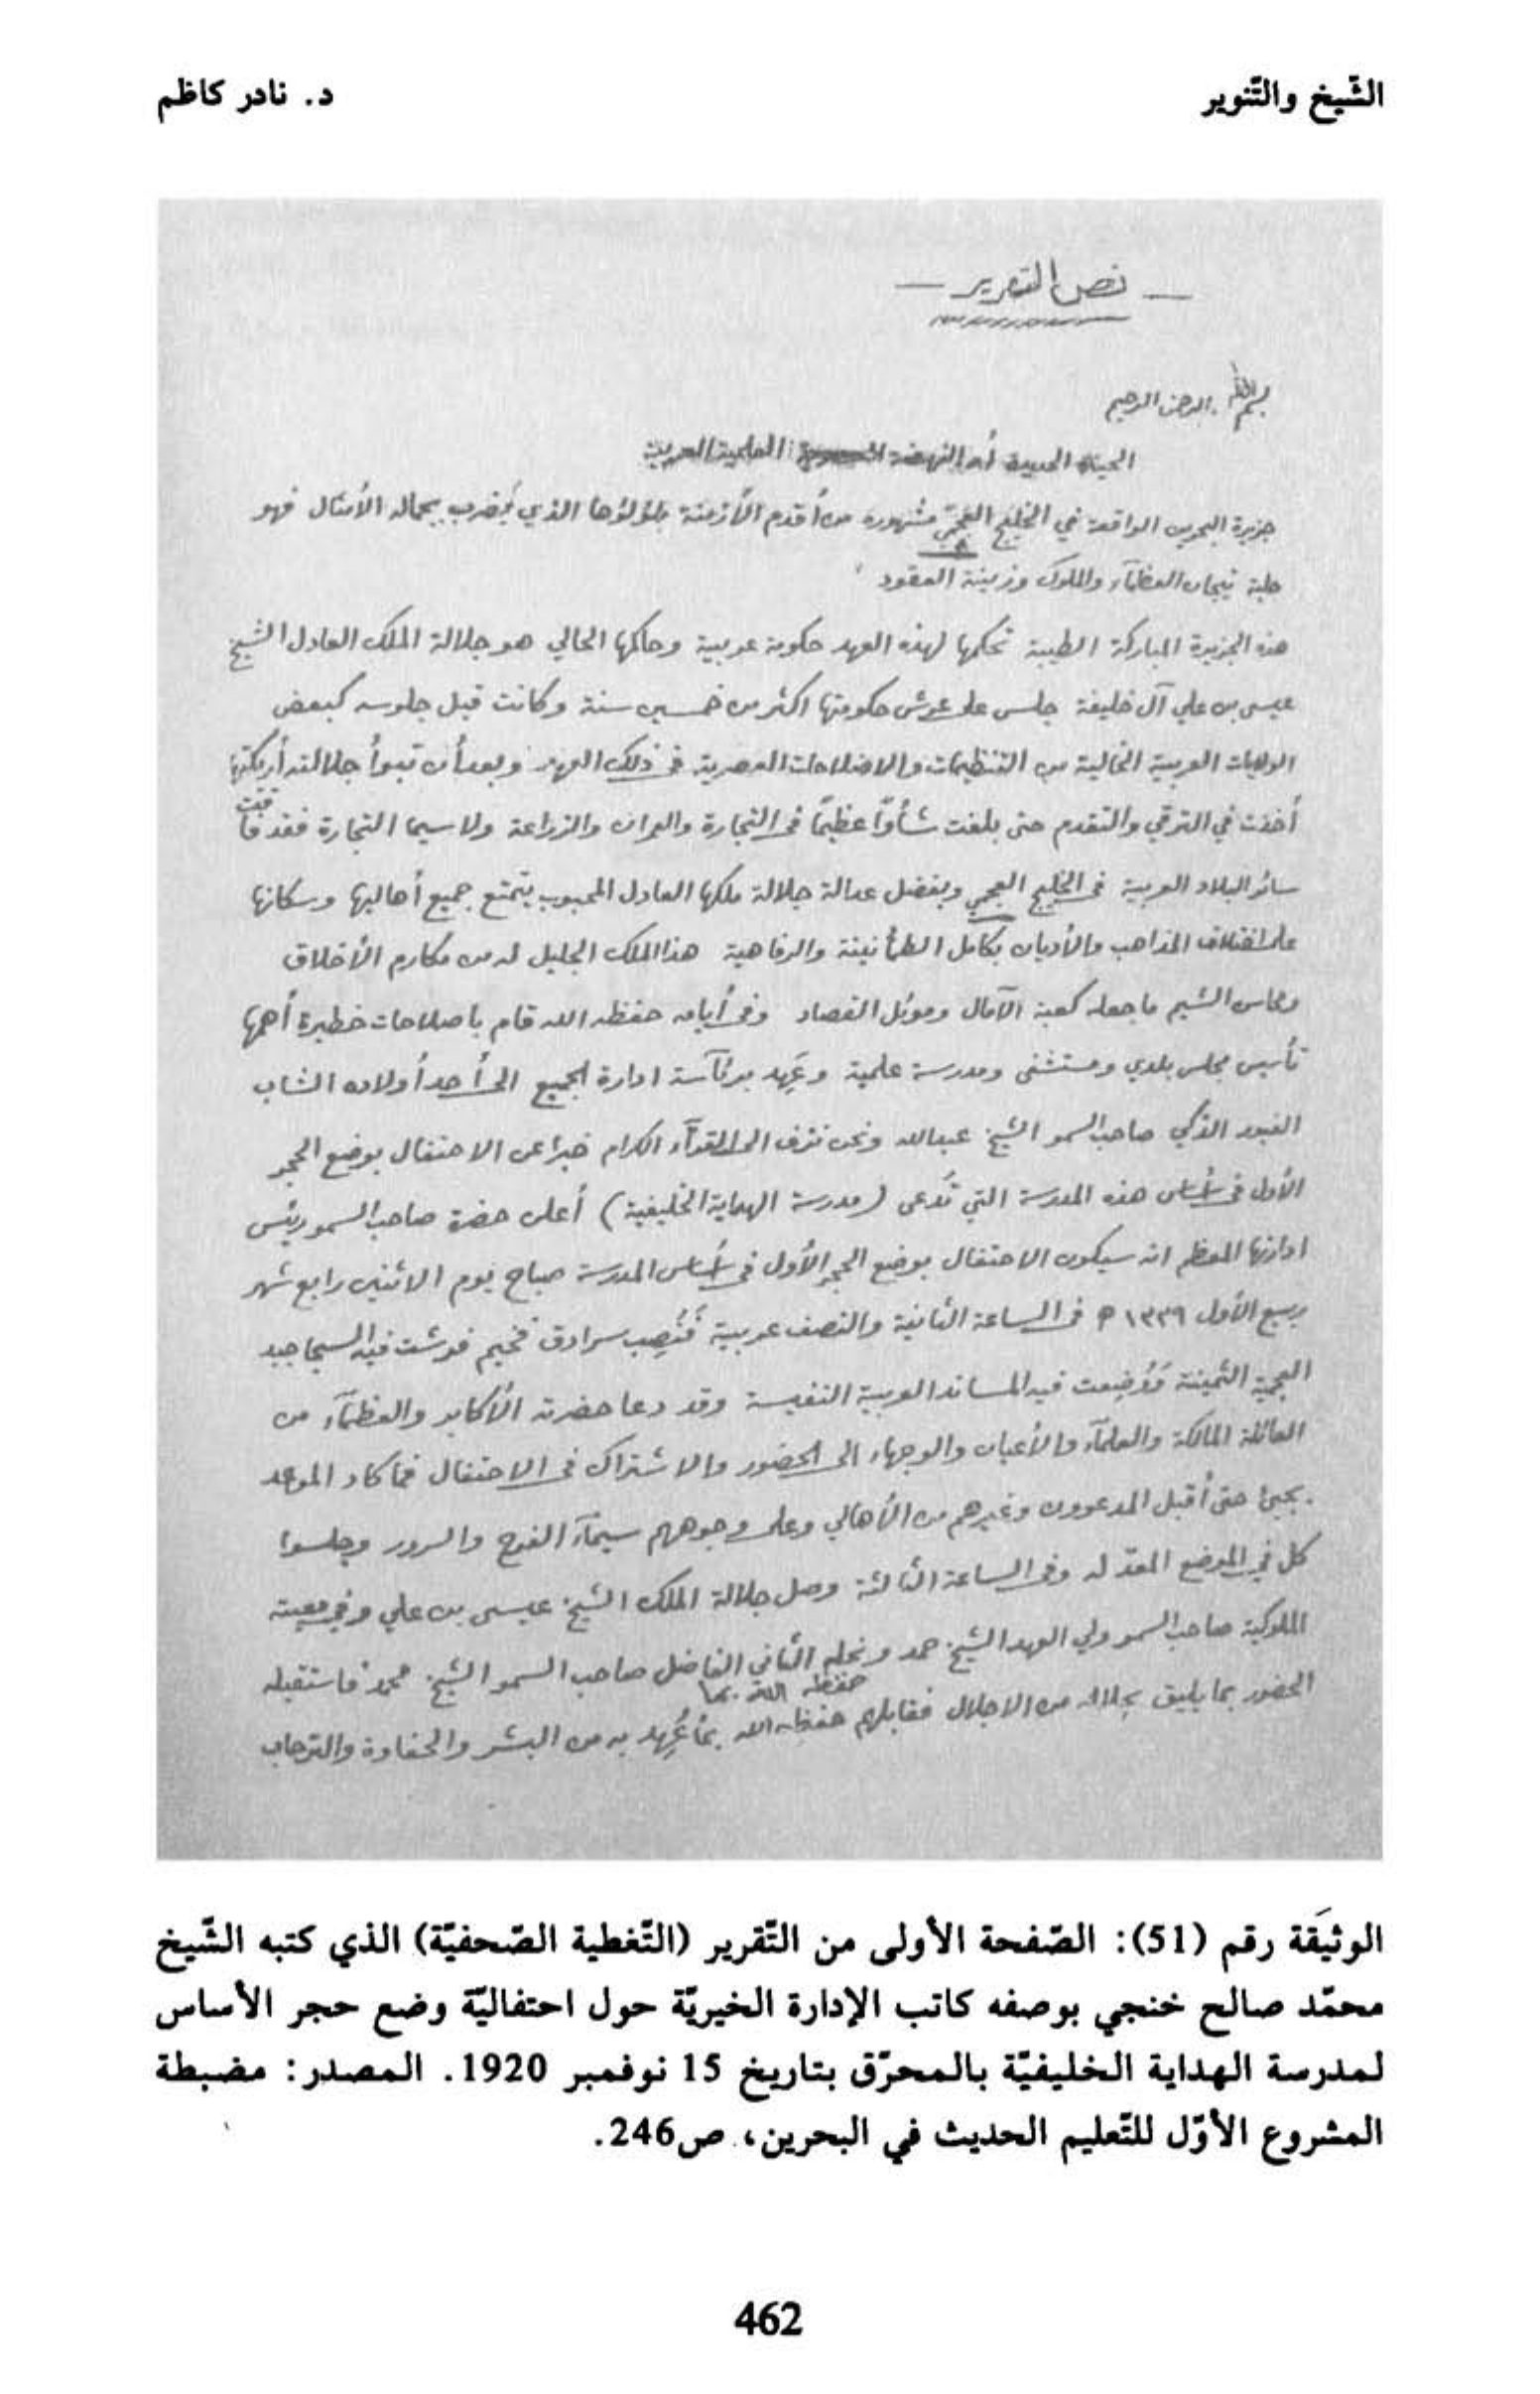 الشّيخ والتّنوير
د. نادر كاظم
— نص التقرير —
بسم الله الرحمن الرحيم
الحياة الجديدة أو النهضة العلمية العربية
جزيرة البحرين الواقعة في الخليج العجمي مشهورة من أقدم الأزمنة بلؤلؤها الذي يُضرب بجماله الأمثال فهو
حلية تيجان العظمآء والملوك وزينة العقود
هذه الجزيرة المباركة الطيبة تحكمها لهذه العهد حكومة عربية وحاكمها الحالي هو جلالة الملك العادل الشيخ
عيسى بن علي آل خليفة جلس على عرش حكومتها اكثر من خمسين سنة وكانت قبل جلوسه كبعض
الولايات العربية الخالية من التنظيمات والاصلاحات العصرية في ذلك العهد وبعد أن تبوأ جلالته أريكتها
أخذت في الترقي والتقدم حتى بلغت شأوًا عظيمًا في التجارة والعمران والزراعة ولا سيما التجارة فقد فاقت
سائر البلاد العربية في الخليج العجمي وبفضل عدالة جلالة ملكها العادل المحبوب يتمتع جميع أهاليها وسكانها
على اختلاف المذاهب والأديان بكامل الطمأنينة والرفاهية هذا الملك الجليل له من مكارم الأخلاق
ومحاسن الشيم ما جعله كعبة الآمال وموئل القصاد وفي أيامه حفظه الله قام باصلاحات خطيرة أهمها
تأسيس مجلس بلدي ومستشفى ومدرسة علمية وعَهِد برئآسة ادارة الجميع الى أحد أولاده الشاب
الغيور الذكي صاحب السمو الشيخ عبدالله ونحن نزف الى القرآء الكرام خبرا عن الاحتفال بوضع الحجر
الأول في أساس هذه المدرسة التي تُدعى (مدرسة الهداية الخليفية) أعلن حضرة صاحب السمو رئيس
ادارتها المعظم انه سيكون الاحتفال بوضع الحجر الأول في أساس المدرسة صباح يوم الاثنين رابع شهر
ربيع الأول ١٣٣٩ ه في الساعة الثانية والنصف عربية فنُصِب سرادق فخيم فرشت فيه السجاجيد
العجمية الثمينة ووُضِعت فيه المساند العربية النفيسة وقد دعا حضرته الأكابر والعظمآء من
العائلة المالكة والعلمآء والأعيان والوجهاء الى الحضور والاشتراك في الاحتفال فما كاد الموعد
يجيئ حتى أقبل المدعوون وغيرهم من الأهالي وعلى وجوههم سيمآء الفرح والسرور وجلسوا
كل في الموضع المعدّ له وفي الساعة الثالثة وصل جلالة الملك الشيخ عيسى بن علي وفي معيته
الملوكية صاحب السمو ولي العهد الشيخ حمد ونجله الثاني الفاضل صاحب السمو الشيخ محمد فاستقبله
حفظه الله بما
الحضور بما يليق بجلاله من الاجلال فقابلهم حفظه الله بما عُهِد به من البشر والحفاوة والترحاب
الوثيقة رقم (51): الصّفحة الأولى من التّقرير (التّغطية الصّحفيّة) الذي كتبه الشّيخ
محمّد صالح خنجي بوصفه كاتب الإدارة الخيريّة حول احتفاليّة وضع حجر الأساس
لمدرسة الهداية الخليفيّة بالمحرّق بتاريخ 15 نوفمبر 1920. المصدر: مضبطة
المشروع الأوّل للتّعليم الحديث في البحرين، ص246.
462